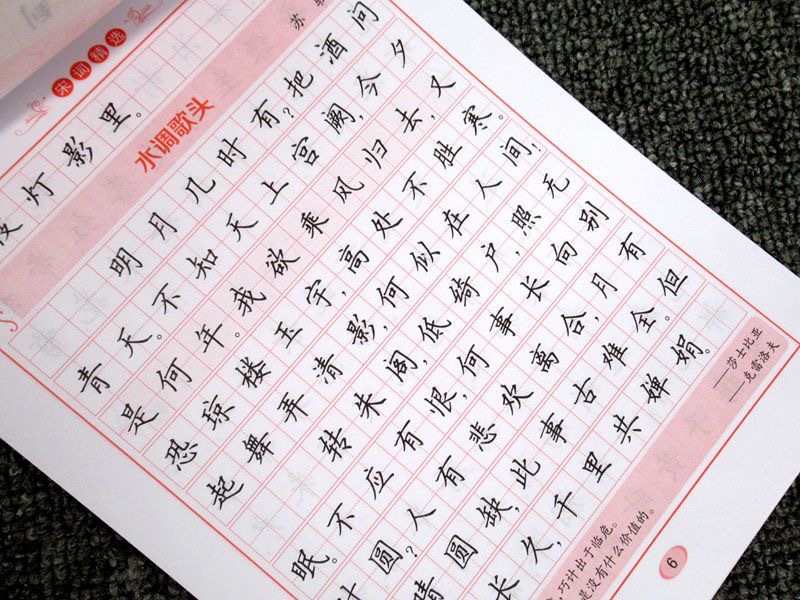 宋词精选
灯影里。
水调歌头
苏
明月几时有?把酒问
青天。不知天上宫阙,今夕
是何年。我欲乘风归去,又
恐琼楼玉宇,高处不胜寒。
起舞弄清影,何似在人间!
转朱阁,低绮户,照无
眠。不应有恨,何事长向别
时圆?人有悲欢离合,月有
晴圆缺,此事古难全。但
长久,千里共婵娟。
巧计出于临危。 ——莎士比亚
是没有什么价值的。 ——克雷洛夫
6